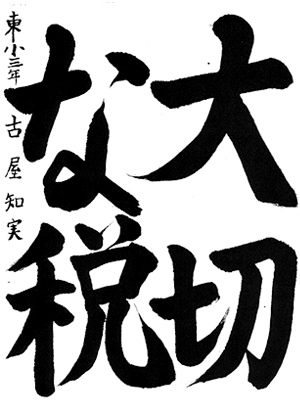 大切
な税
東小三年 古屋知実